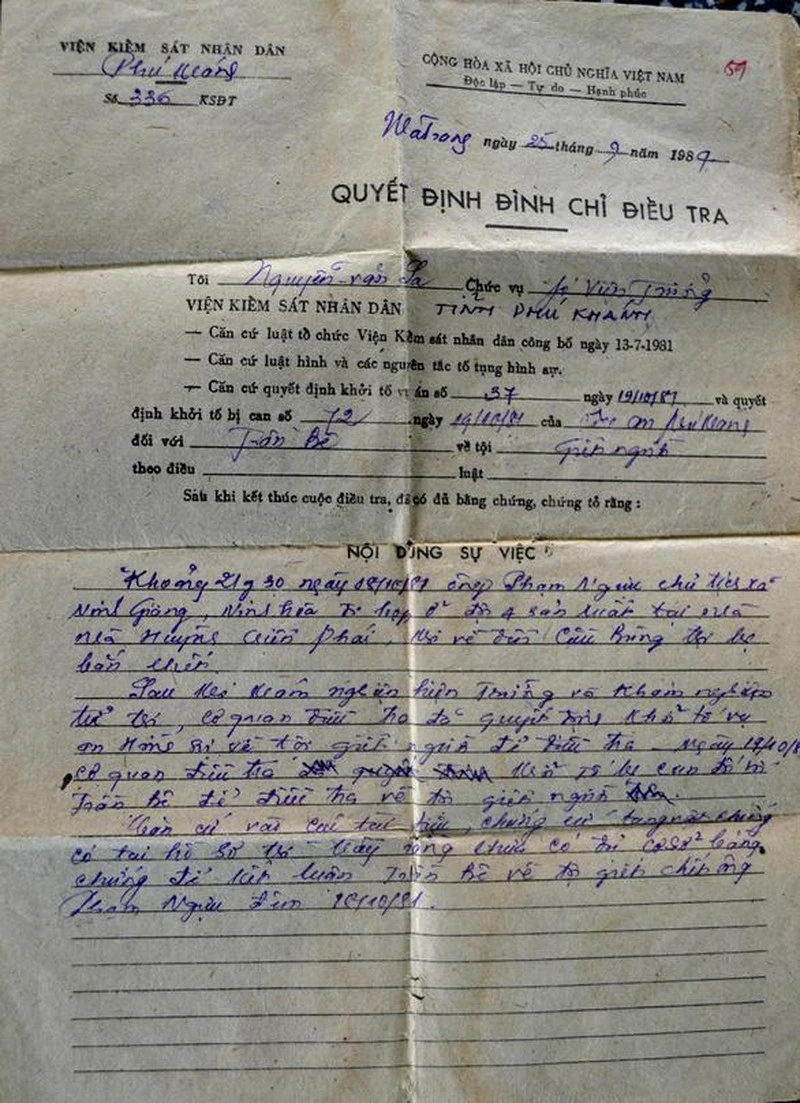 VIỆN KIỂM SÁT NHÂN DÂN
Phú Khánh
Số 336 KSĐT
CỘNG HÒA XÃ HỘI CHỦ NGHĨA VIỆT NAM
Độc lập — Tự do — Hạnh phúc
59
NhaTrang ngày 25 tháng 9 năm 1987
QUYẾT ĐỊNH ĐÌNH CHỈ ĐIỀU TRA
Tôi Nguyễn văn Chức vụ Viện Trưởng
VIỆN KIỂM SÁT NHÂN DÂN TỈNH PHÚ KHÁNH
— Căn cứ luật tổ chức Viện Kểm sát nhân dân công bố ngày 13-7-1981
— Căn cứ luật hình và các nguyên tắc tố tụng hình sự.
— Căn cứ quyết định khởi tố vụ án số 37 ngày 19/10/81 và quyết
định khởi tố bị can số 72 ngày 19/10/81 của
đối với Trần Bê về tội Giết người
theo điều luật
Sau khi kết thúc cuộc điều tra, đã có đủ bằng chứng, chứng tỏ rằng :
NỘI DUNG SỰ VIỆC
Khoảng 21g30 ngày 18/10/81 ông Phạm Ngựu chủ tịch xã
Ninh Giang, Ninh hòa đi họp ở đội 4 sản xuất tại nhà
Huỳnh về đến Cầu thì bị
bắn chết.
Sau khi khám nghiệm hiện Trường và Khám nghiệm
tử thi, cơ quan điều tra đã quyết định Khởi tố vụ
án hình sự về tội giết người để điều tra - Ngày 19/10/8
cơ quan điều tra khởi tố bị can đối với
Trần Bê để điều tra về tội giết người
Căn cứ vào các tài liệu, chứng cứ, tang vật chứng
có tại hồ sơ thì thấy rằng chưa có đủ cơ sở bằng
chứng để kết luận Trần Bê về tội giết chết ông
Phạm Ngựu đêm 18/10/81.